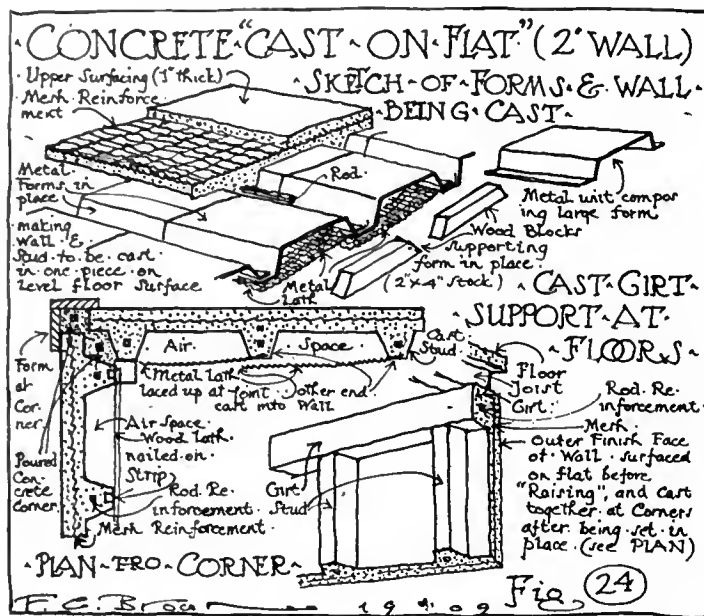 CONCRETE "CAST ON FLAT" (2" WALL)
SKETCH OF FORMS & WALL
BEING CAST
Upper Surfacing (1" thick)
Mesh Reinforce
ment
Metal
Forms in
place
making
Wall &
Stud to be cast
in one piece on
level floor surface
Rod
Metal unit compos
ing large form
Wood Blocks
supporting
form in place
(2"x4" stock)
Metal
Lath
CAST GIRT
SUPPORT AT
FLOORS
Form
at
Cor
ner
Poured
Con
crete
Corner
Air Space
Cast
Stud
Metal lath
laced up at joint
other end
cast into Wall
Air Space
Wood Lath
nailed on
Strip
Rod Re
inforcement
Mesh Reinforcement
Floor
Joist
Girt
Rod Re
inforcement
Mesh
Outer Finish Face
of Wall surfaced
on flat before
"Raising", and cast
together at Corners
after being set in
place (see PLAN)
Girt
Stud
PLAN FRO CORNER
1909
Fig. 24